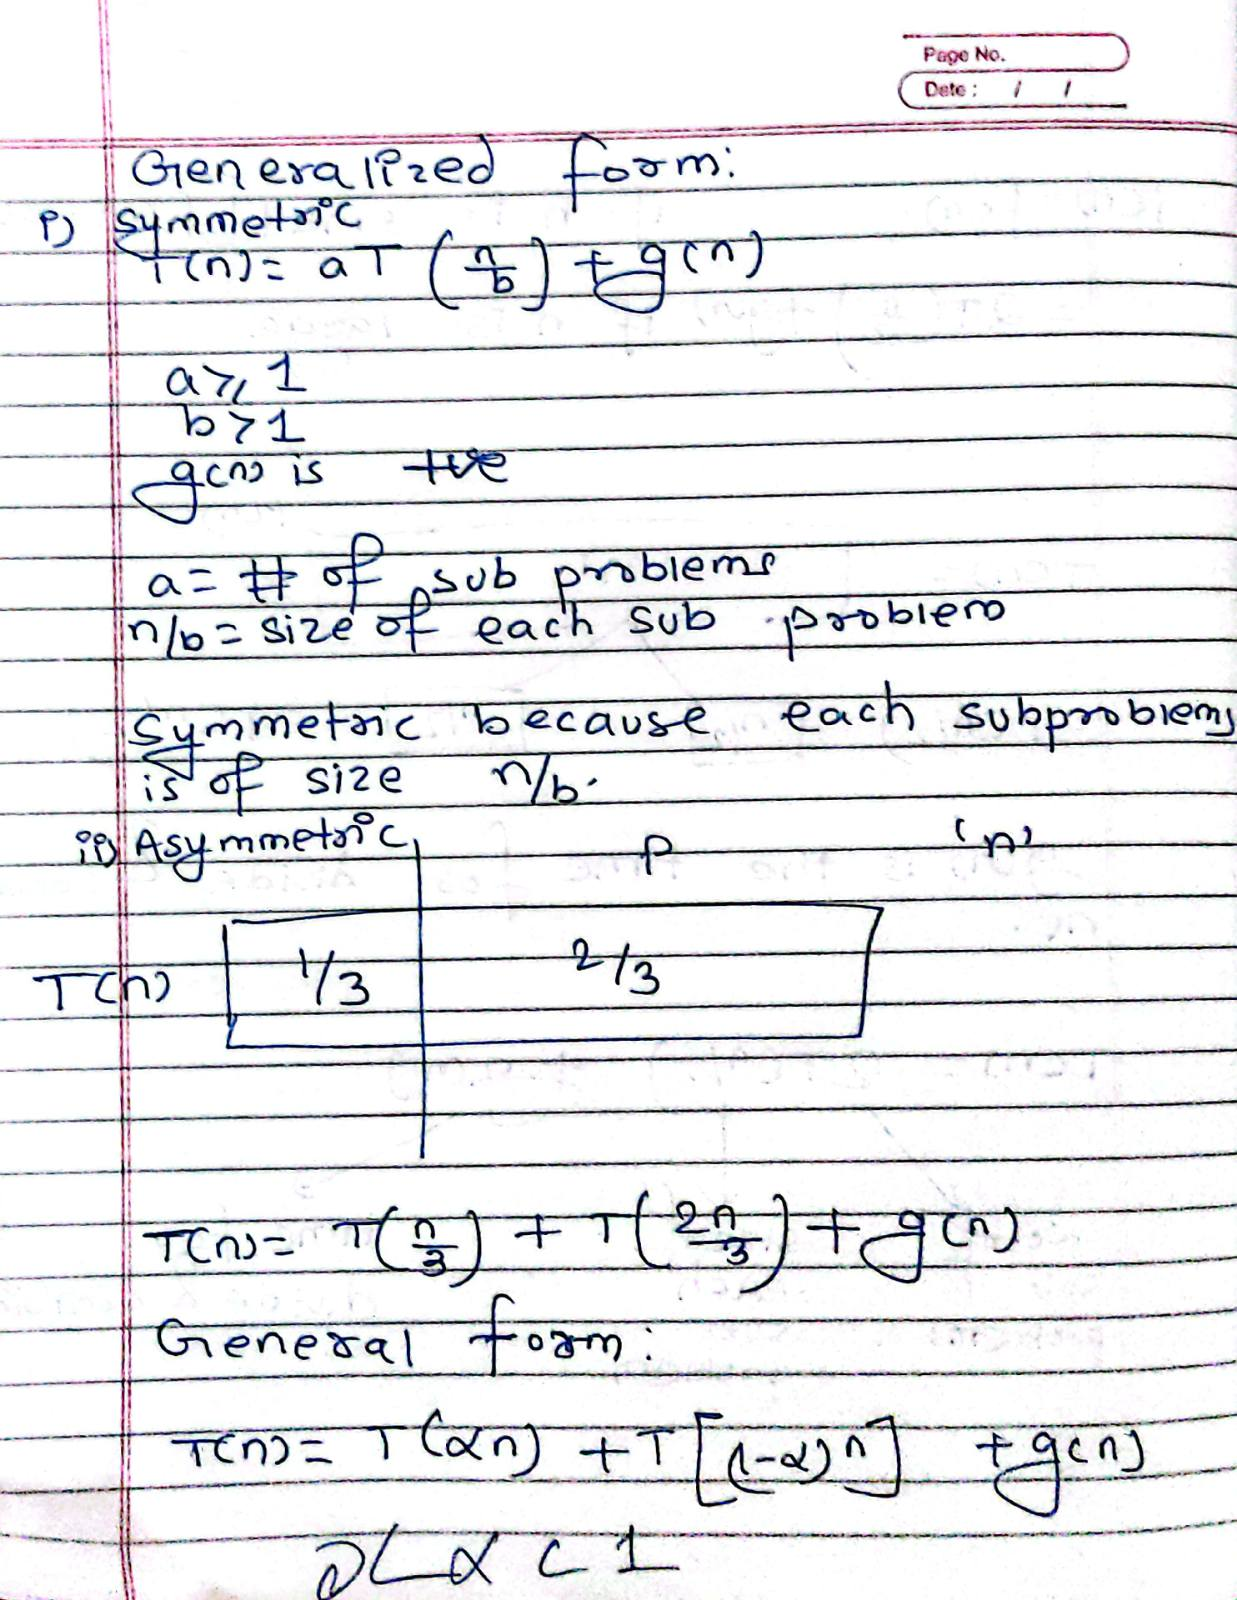 Page No.
Date : / /
Generalized form:
i) Symmetric
T(n) = aT (n/b) + g(n)
a ⩾ 1
b > 1
g(n) is +ve
a = # of sub problems
n/b = size of each sub problem
Symmetric because each subproblems
is of size n/b.
ii) Asymmetric P 'n'
T(n) 1/3 2/3
T(n) = T(n/3) + T(2n/3) + g(n)
General form:
T(n) = T(αn) + T[(1-α)n] + g(n)
0 < α < 1